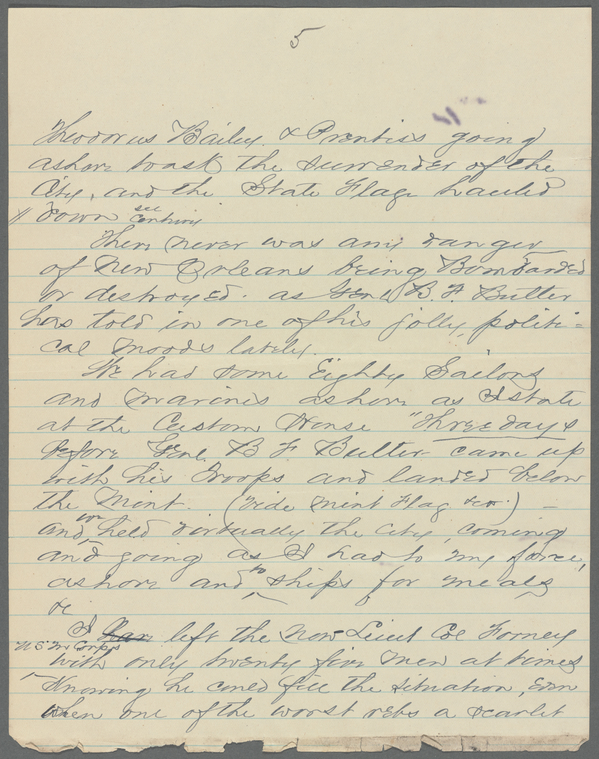 5
Theodorus Bailey & Prentiss going
ashore to ask the surrender of the
City, and the State Flag hauled
// down see
There never was any danger
of New Orleans being Bombarded
or destroyed. as Genl B. F Butler
has told in one of his jolly, politi=
cal moods lately.
We had some Eighty Sailors
and marines ashore as I state
at the Custom House "Three days
before Genl B F Butler came up
with his Troops and landed below
the Mint. (vide Mint Flag &c.) —
and we held virtually the City, coming
and going as I had to my force,
ashore and to ships for meals
&c
I left the now Lieut Col Forney
U S M Corps
with only twenty five men at times
Knowing he could fill the situation, even
when one of the worst rebs a scarlet